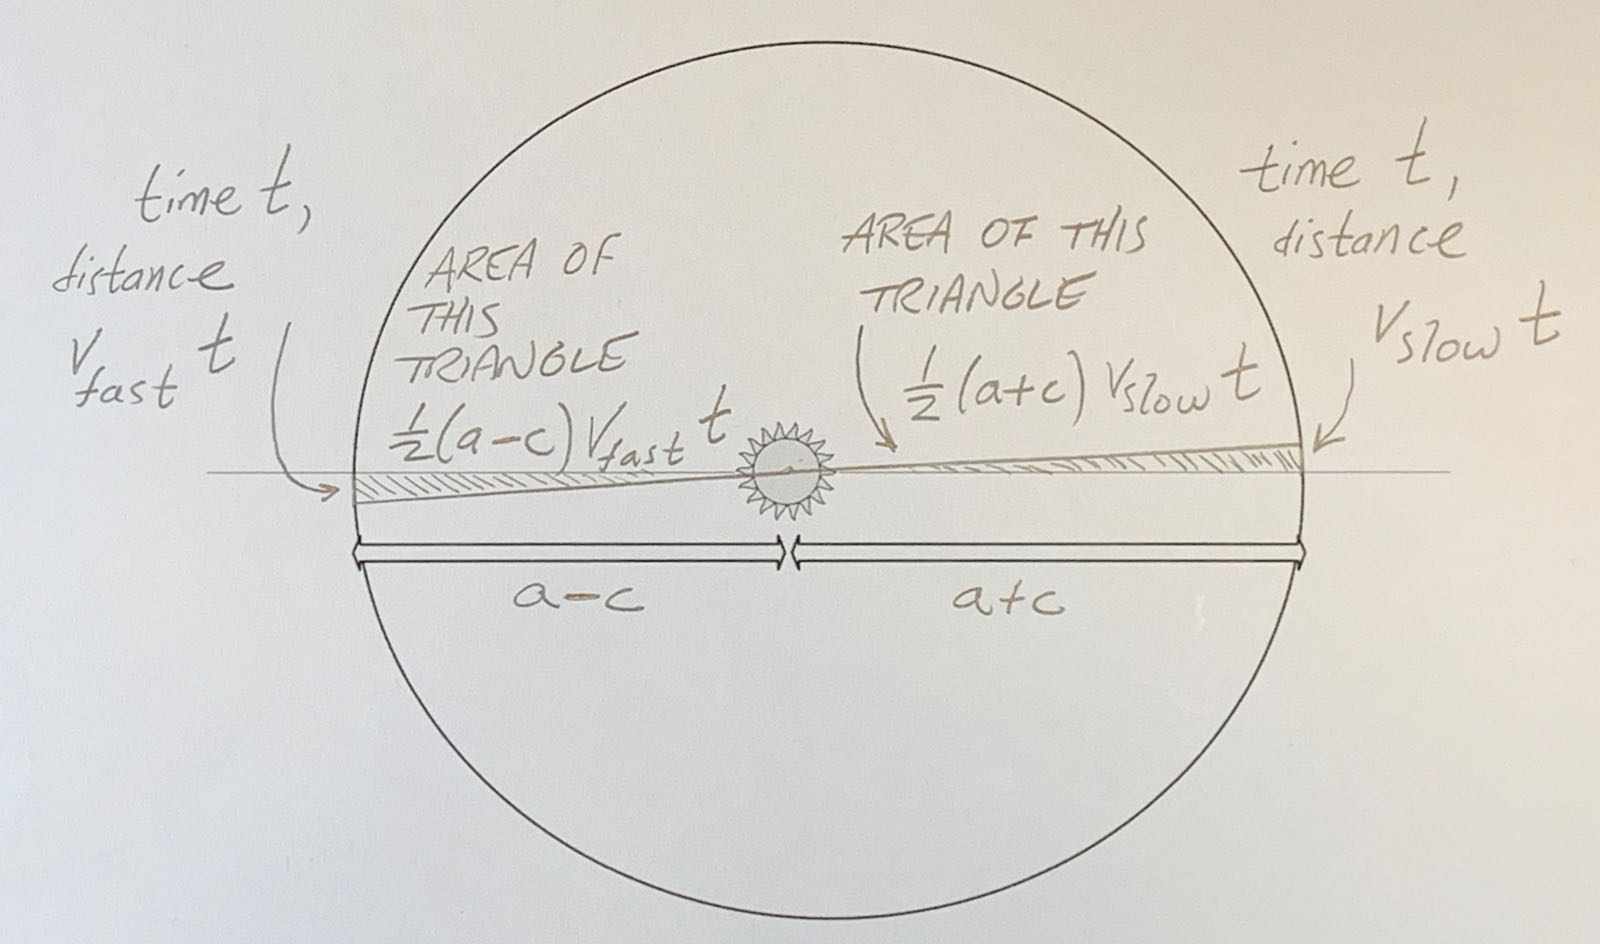 time t,
distance
v_fast t
AREA OF
THIS
TRIANGLE
½(a-c) v_fast t
AREA OF THIS
TRIANGLE
½(a+c) v_slow t
time t,
distance
v_slow t
a-c
a+c